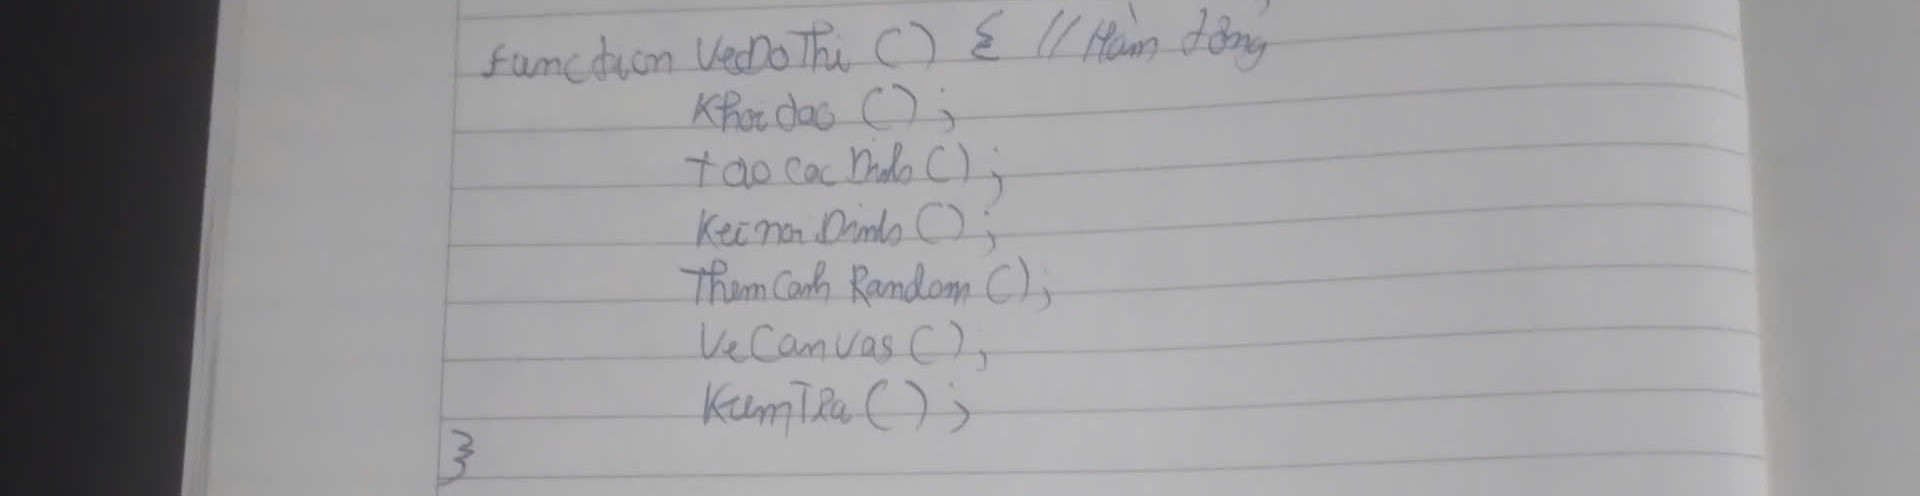 function VeDoThi () { // Hàm tổng
Khoi dao ();
tao Cac Dinh ();
Ket noi Dinh ();
Them Canh Random ();
Ve Canvas ();
KiemTRa ();
}